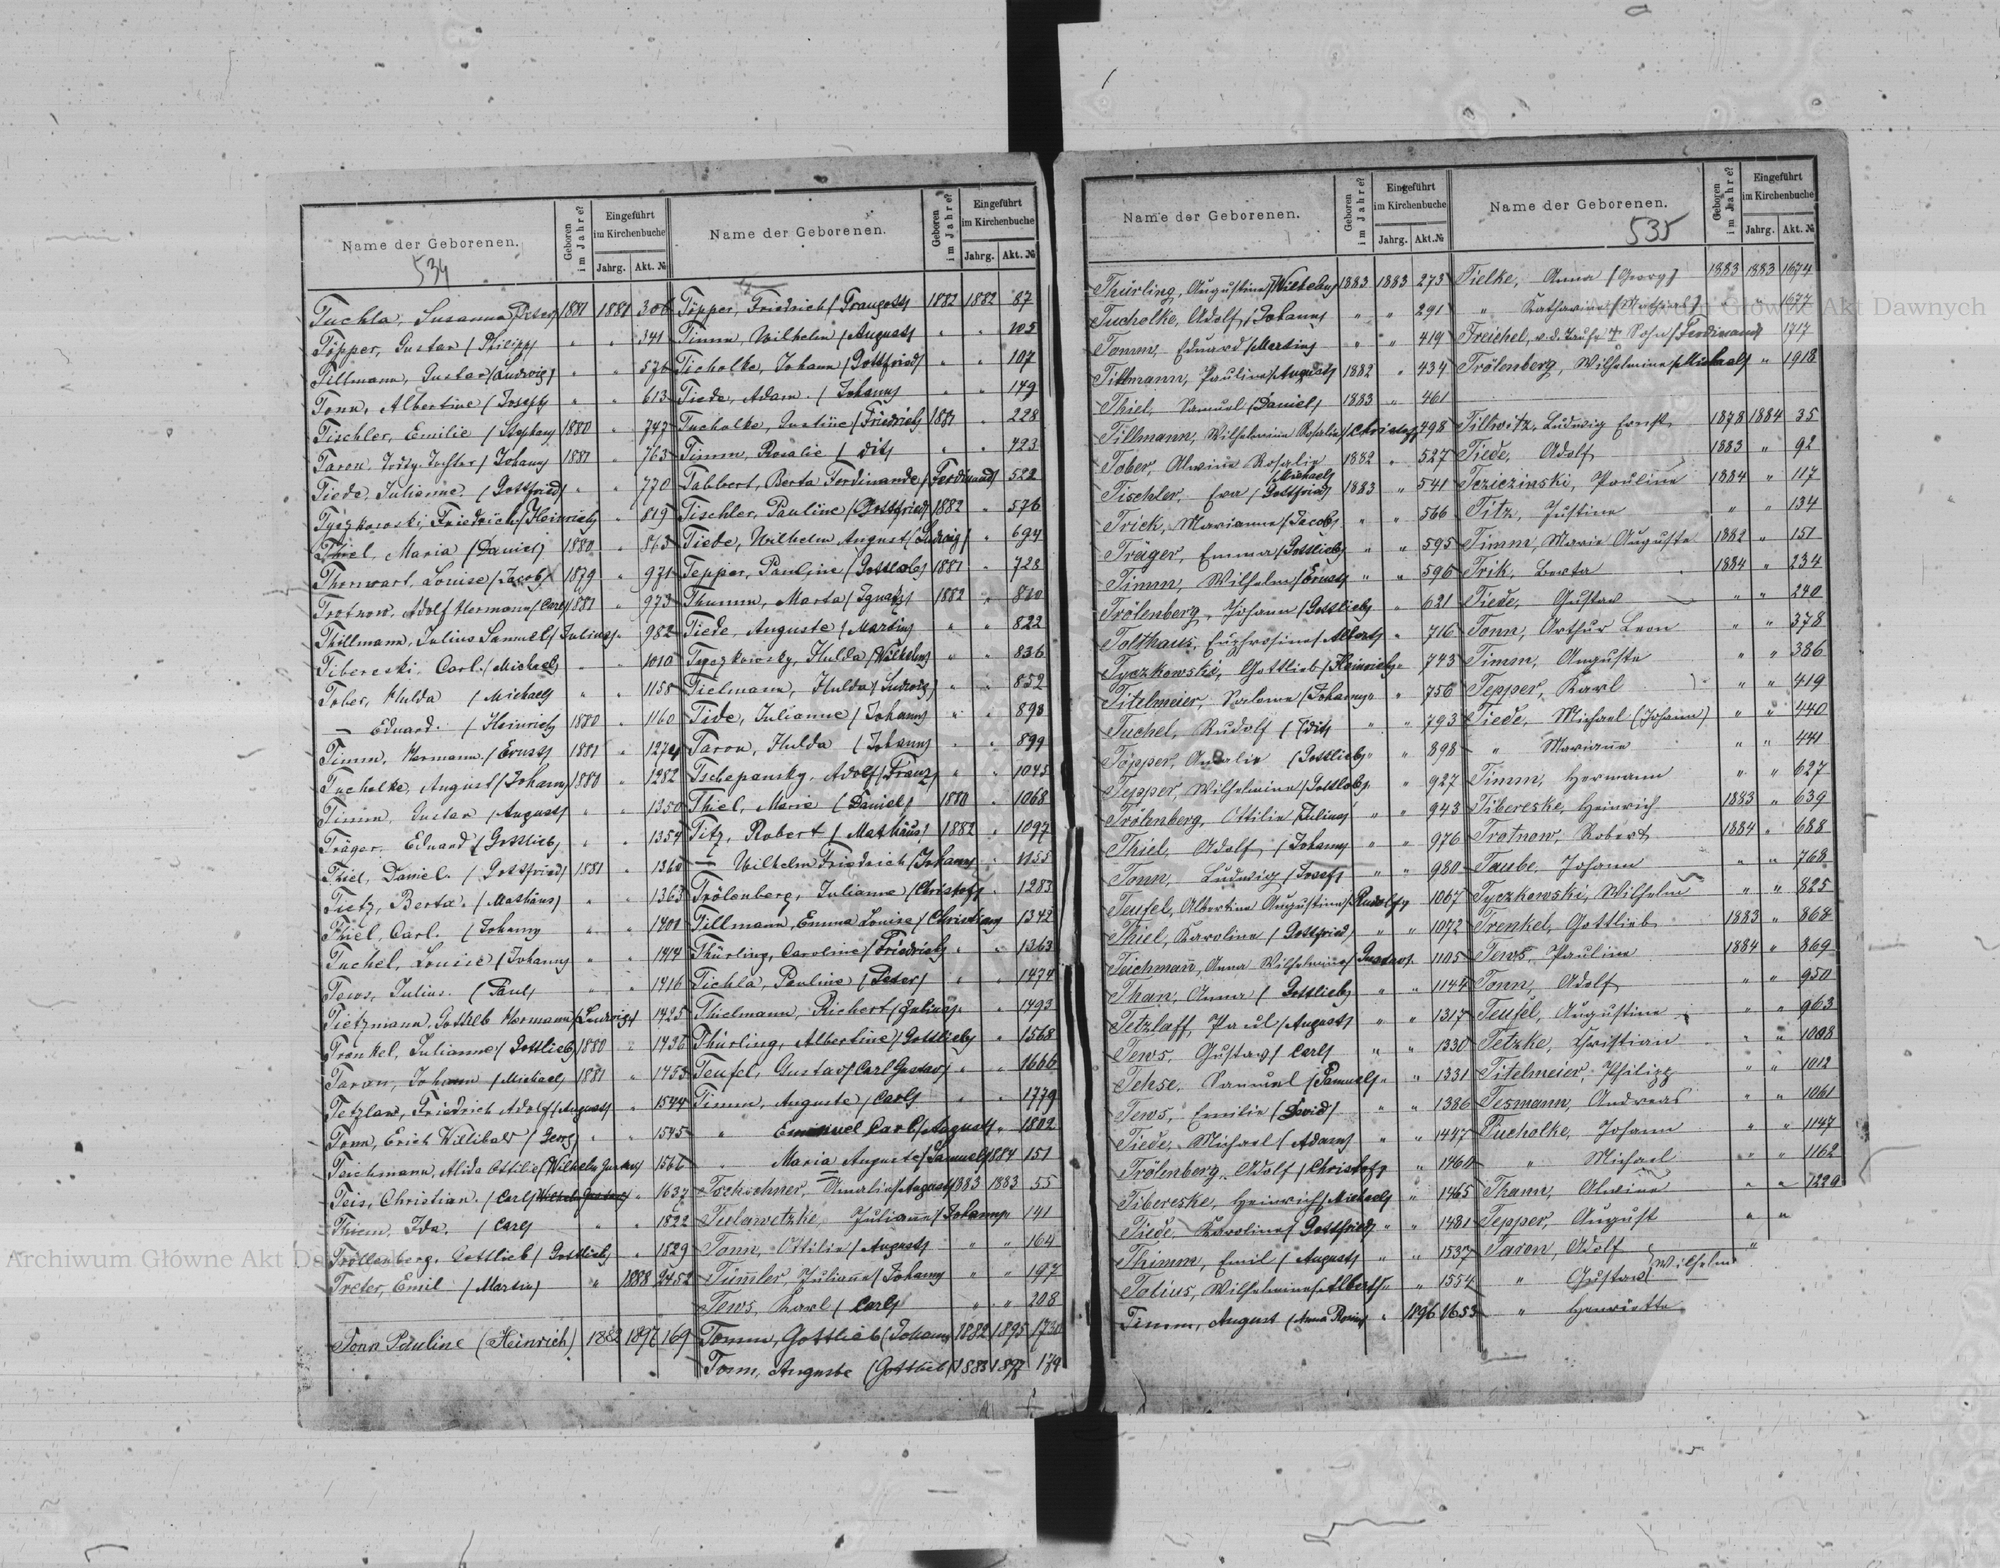 Name der Geborenen.
Geboren im Jahre?
Eingeführt im Kirchenbuche
Jahrg. Akt. №
534
Tuchla, Susanna (Peter) 1881 1881 306
Töpper, Gustav (Philipp) " " 341
Tillmann, Gustav (Ludwig) " " 576
Tonn, Albertine (Joseph) " " 613
Tischler, Emilie (Stephan) 1880 " 747
Taron, Todtg. Tochter (Johann) 1881 " 763
Tiede, Julianne (Gottfried) " " 770
Tyczkowski, Friedrich (Heinrich) " 819
Thiel, Maria (Daniel) 1880 " 863
Thenwart, Louise (Jacob) 1879 " 971
Trotnow, Adolf Hermann (Carl) 1881 " 973
Thillmann, Julius Samuel (Julius) " 982
Tibereski, Carl (Michael) " " 1010
Tober, Hulda (Michael) " " 1158
— Eduard (Heinrich) 1880 " 1160
Timm, Hermann (Ernst) 1881 " 1274
Tucholke, August (Johann) 1880 " 1282
Timm, Gustav (August) " " 1350
Träger, Eduard (Gottlieb) " " 1354
Thiel, Daniel (Gottfried) 1881 " 1360
Tietz, Berta (Mathäus) " " 1363
Thiel, Carl (Johann) " " 1401
Tuchel, Louise (Johann) " " 1414
Tews, Julius (Paul) " " 1416
Tietzmann, Gottlieb Hermann (Ludwig) " 1425
Trenkel, Julianne (Gottlieb) 1880 " 1436
Taron, Johann (Michael) 1881 " 1455
Tetzlaw, Friedrich Adolf (August) " 1544
Tonn, Erich Willibald (Georg) " " 1545
Teichmann, Alida Ottilie (Wilhelm Gustav) 1566
Teis, Christian (Carl) 1637
Thiem, Ida (Carl) " " 1822
Tröllenberg, Gottlieb (Gottlieb) " 1829
Treter, Emil (Martin) " 1888 2452
Tonn Pauline (Heinrich) 1882 1897 169
Name der Geborenen.
Geboren im Jahre?
Eingeführt im Kirchenbuche
Jahrg. Akt. №
Töpper, Friedrich (Traugott) 1882 1882 87
Timm, Wilhelm (August) " " 105
Ticholke, Johann (Gottfried) " " 107
Tiede, Adam (Johann) " " 149
Tucholke, Justine (Friedrich) 1881 " 228
Timm, Rosalie (dit) " " 423
Tabbert, Berta Ferdinande (Ferdinand) 522
Tischler, Pauline (Gottfried) 1882 " 576
Tiede, Wilhelm August (Ludwig) " 694
Tepper, Pauline (Gottlob) 1881 " 728
Thumm, Marta (Ignatz) 1882 " 810
Tiede, Auguste (Martin) " " 822
Tyczkowsky, Hulda (Wilhelm) " " 836
Tielmann, Hulda (Ludwig) " " 852
Tide, Julianne (Johann) " " 898
Taron, Hulda (Johann) " " 899
Tschepansky, Adolf (Franz) " " 1045
Thiel, Marie (Daniel) 1880 " 1068
Titz, Robert (Mathäus) 1882 " 1097
— Wilhelm Friedrich (Johann) " 1155
Trölenberg, Julianne (Christof) " 1283
Tillmann, Emma Louise (Christian) 1342
Thürling, Caroline (Friedrich) " " 1363
Tichla, Pauline (Peter) " " 1474
Thielmann, Richert (Julius) " " 1493
Thürling, Albertine (Gottlieb) " 1568
Teufel, Gustav (Carl Gustav) " " 1666
Timm, Auguste (Carl) " " 1779
" Emanuel Carl (August) " 1802
" Maria Auguste (Samuel) 1884 151
Tschischner, Amalie (August) 1883 1883 55
Tulawetzke, Julianne (Johann) " 141
Tonn, Ottilie (August) " " 164
Tümmler, Julianne (Johann) " " 197
Tews, Karl (Carl) " " 208
Tomm, Gottlieb (Johann) 1882 1895 1730
Tonn, Auguste (Gottlieb) 1883 1897 179
Name der Geborenen.
Geboren im Jahre?
Eingeführt im Kirchenbuche
Jahrg. Akt. №
Thürling, Augustine 1883 1883 273
Tucholke, Adolf (Johann) " " 291
Tomm, Eduard (Martin) " " 419
Tillmann, Pauline (August) 1882 " 434
Thiel, Samuel (Daniel) 1883 " 461
Tillmann, Wilhelmine Rosalie (Christof) 498
Tober, Alwine Rosalie (Michael) 1882 " 527
Tischler, Eva (Gottfried) 1883 " 541
Trick, Marianne (Jacob) " " 566
Träger, Emma (Gottlieb) " " 595
Timm, Wilhelm (Ernst) " " 596
Trölenberg, Johann (Gottlieb) " 621
Tolthaus, Euphrosine (Albert) " 716
Tyczkowski, Gottlieb (Heinrich) " 743
Titelmeier, Salome (Johann) " " 756
Tuchel, Rudolf (dit) " " 793
Töpper, Amalie (Gottlieb) " " 898
Tepper, Wilhelmine (Gottlob) " 927
Trölenberg, Ottilie (Julius) " " 943
Thiel, Adolf (Johann) " " 976
Tonn, Ludwig (Josef) " " 980
Teufel, Albertine Augustine (Rudolf) " 1067
Thiel, Karoline (Gottfried) " " 1072
Teichmann, Anna Wilhelmine (Gustav) " 1105
Than, Anna (Gottlieb) " " 1144
Tetzlaff, Paul (August) " " 1317
Tews, Gustav (Carl) " " 1330
Tehse, Samuel (Samuel) " " 1331
Tews, Emilie (David) " " 1386
Tiede, Michael (Adam) " " 1447
Trölenberg, Adolf (Christof) " 1460
Tibereske, Heinrich (Michael) " 1465
Tiede, Karoline (Gottfried) " " 1481
Thimm, Emil (August) " " 1537
Tolius, Wilhelmine (Albert) " " 1554
Timm, August (Anna Rosine) " 1896 1653
Name der Geborenen.
535
Geboren im Jahre?
Eingeführt im Kirchenbuche
Jahrg. Akt. №
Tielke, Anna (Georg) 1883 1883 1674
" Katharina (Michael) " " 1677
Treichel, v. d. Taufe † Sohn (Ferdinand) 1717
Trölenberg, Wilhelmine (Michael) " 1918
Tilkwitz, Ludwig Ernst 1878 1884 35
Tiede, Adolf 1883 " 92
Tcziczinski, Pauline 1884 " 117
Titz, Justine " " 134
Timm, Marie Auguste 1882 " 151
Trik, Berta 1884 " 234
Tiede, Gustav " " 240
Tonn, Arthur Leon " " 378
Timm, Auguste " " 386
Tepper, Karl " " 419
Tiede, Michael (Johann) " " 440
" Marianne " " 441
Timm, Hermann " " 627
Tibereske, Heinrich 1883 " 639
Trotnow, Robert 1884 " 688
Taube, Johann " " 768
Tyczkowski, Wilhelm " " 825
Trenkel, Gottlieb 1883 " 868
Tews, Pauline 1884 " 869
Tonn, Adolf " " 950
Teufel, Augustine " " 963
Tetzke, Christian " " 1008
Titelmeier, Philipp " " 1012
Tesmann, Andreas " " 1061
Tucholke, Johann " " 1147
" Michael " " 1162
Thann, Alwine " " 1229
Tepper, August " "
Taron, Adolf "
" Gustav Wilhelm
" Henriette
Archiwum Główne Akt Dawnych
Archiwum Główne Akt Dawnych